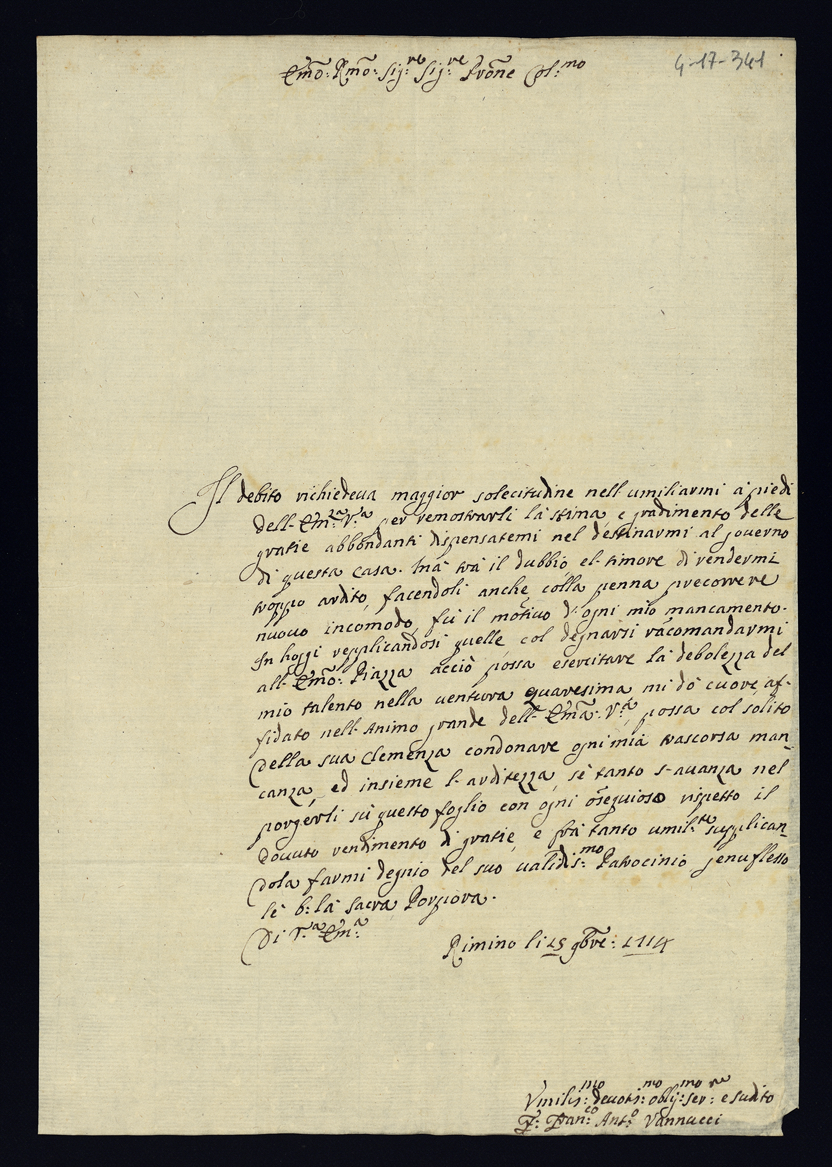 4-17-341
Emo: Rmo: Sig:re Sig:re Prōne Col:mo
Il debito richiedeua maggior solecitudine nell-umiliarmi à piedi
dell-Em:za V:a per remostrarli la stima, e gradimento delle
gratie abbondanti dispensatemi nel destinarmi al gouerno
di questa casa. Mà trà il dubbio, el-timore di rendermi
troppo ardito, facendoli anche colla penna precorrere
nuouo incomodo, fù il motiuo d'ogni mio mancamento.
In hoggi repplicandosi quelle col degnarsi racomandarmi
all-Emō: Piazza acciò possa esercitare la debolezza del
mio talento nella uentura quaresima, mi dò cuore, af-
fidato nell-Animo grande dell-Emā: V:a, possa col solito
della sua Clemenza condonare ogni mia trascorsa man_
canza, ed insieme l-arditezza, sè tanto s-auanza nel
porgerli sù questo foglio con ogni osequioso rispetto il
douuto rendimento di gratie, e frà tanto umil:te supplican_
dola farmi degnio del suo ualidis:mo Patrocinio genuflesso
lè b: là Sacra Porpora.
Di V:a Em:a
Rimino li 15 9bre: 1714
Vmilis:mo deuotis:mo oblig:mo ser:re e sudito
F: Ant:o Vannucci